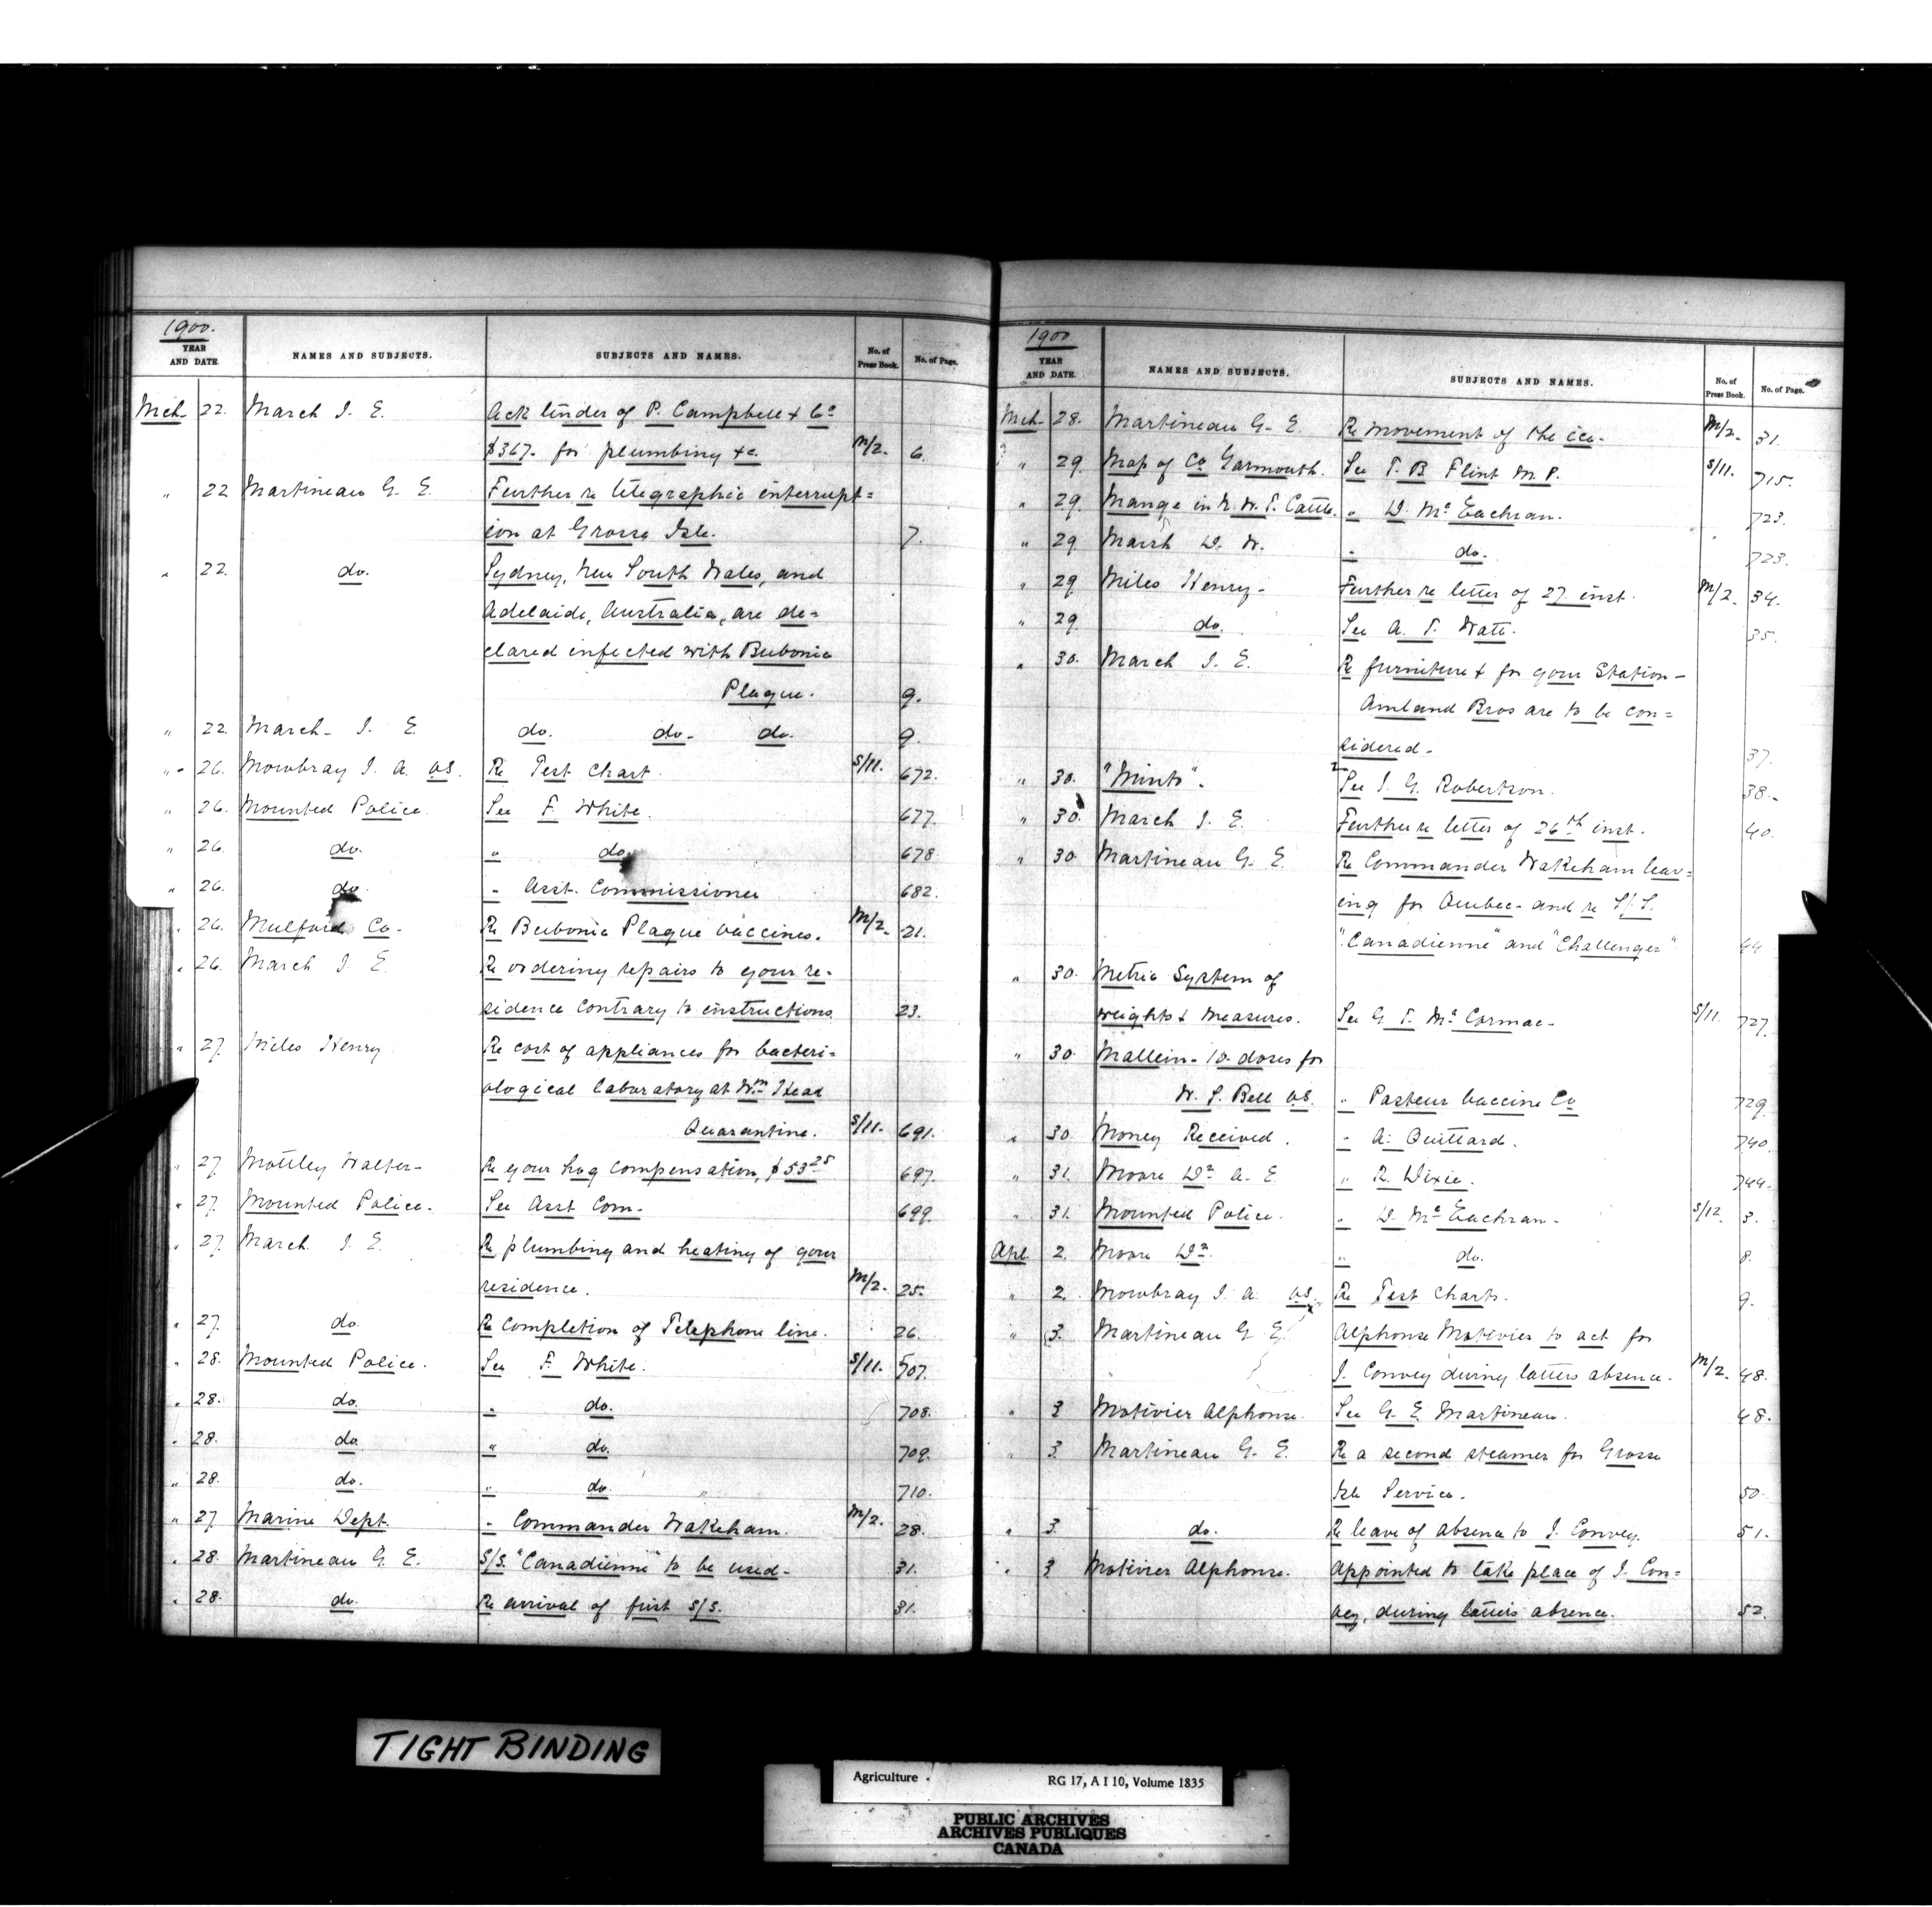 1900.
YEAR AND DATE. NAMES AND SUBJECTS. SUBJECTS AND NAMES. No. of Press Book. No. of Page.
Mch 22. March I. E. Ack tinder of P. Campbell & Co
$367. for plumbing &c. M/2. 6.
" 22 Martineau G. E. Further re telegraphic interrupt=
ion at Grosse Isle. 7.
" 22. do. Sydney, New South Wales, and
Adelaide, Australia, are de=
clared infected with Bubonic
Plague. 9.
" 22. March- I. E do. do- do. 9.
" 26. Mowbray I. A. VS. Re Test Chart. S/11. 672.
" 26. Mounted Police. See F. White. 677.
" 26. do. " do. 678
" 26. do. " Asst. Commissioner 682.
" 26. Mulford Co- Re Bubonic Plague Vaccines. M/2. 21.
" 26. March I. E. Re ordering repairs to your re-
sidence contrary to instructions 23.
" 27. Miles Henry Re cost of appliances for bacteri-
ological laboratory at Wm Head
Quarantine. S/11. 691.
" 27. Mottley Walter- Re your hog compensation, $53 25 697.
" 27. Mounted Police. See Asst Com- 699.
" 27. March I. E. Re plumbing and heating of your
residence. M/2. 25.
" 27. do. Re completion of Telephone line. 26.
" 28. Mounted Police. See F. White. S/11. 707.
" 28. do. " do. 708.
" 28. do. " do. 709.
" 28. do. " do. 710.
" 27. Marine Dept. " Commander Wakeham. M/2. 28.
" 28. Martineau G. E. S/S. "Canadienne" to be used- 31.
" 28. do. Re arrival of first S/S. 31.
1900
YEAR AND DATE. NAMES AND SUBJECTS. SUBJECTS AND NAMES. No. of Press Book. No. of Page.
Mch- 28. Martineau G- E. Re movement of the ice- M/2. 31.
" 29. Map of Co Yarmouth. See T. B Flint M.P. S/11. 715.
" 29. Mange in N. W. T. Cattle. " D. McEachran. 723.
" 29. Marsh D. W. " do. 723.
" 29. Miles Henry- Further re letter of 27 inst. M/2. 34.
" 29. do. See A. T. Watt. 35.
" 30. March I. E. Re furniture & for your Station-
Amland Bros are to be con=
sidered- 37.
" 30. "Minto". See I. G. Robertson. 38.
" 30. March I. E. Further re letter of 26th inst. 40.
" 30. Martineau G. E. Re Commander Wakeham leav=
ing for Quebec- and re S/S.
"Canadienne" and "Challenger" 44
" 30. Metric System of
weights & measures. See G. T. McCormac- S/11. 727.
" 30. Mallein- 10 doses for
W. S. Bell VS. " Pasteur Vaccine Co 729.
" 30. Money Received. " A. Quittard. 740.
" 31. Moore Dr A. E " R. Dixie. 744.
" 31. Mounted Police. " D. McEachran- S/12. 3.
Apl. 2. Moore Dr. " do. 8.
" 2. Mowbray I. A. VS. Re Test Charts. 9.
" 3. Martineau G. E. Alphonse Motivier to act for
I. Convey during latters absence. M/2. 48.
" 3 Motivier Alphonse. See G. E. Martineau. 48.
" 3. Martineau G. E. Re a second steamer for Grosse
Isle Service. 50.
" 3. do. Re leave of absence to I. Convey. 51.
" 3. Motivier Alphonse. Appointed to take place of I. Con=
vey, during latters absence. 52.
TIGHT BINDING
Agriculture. RG 17, A I 10, Volume 1835
PUBLIC ARCHIVES
ARCHIVES PUBLIQUES
CANADA